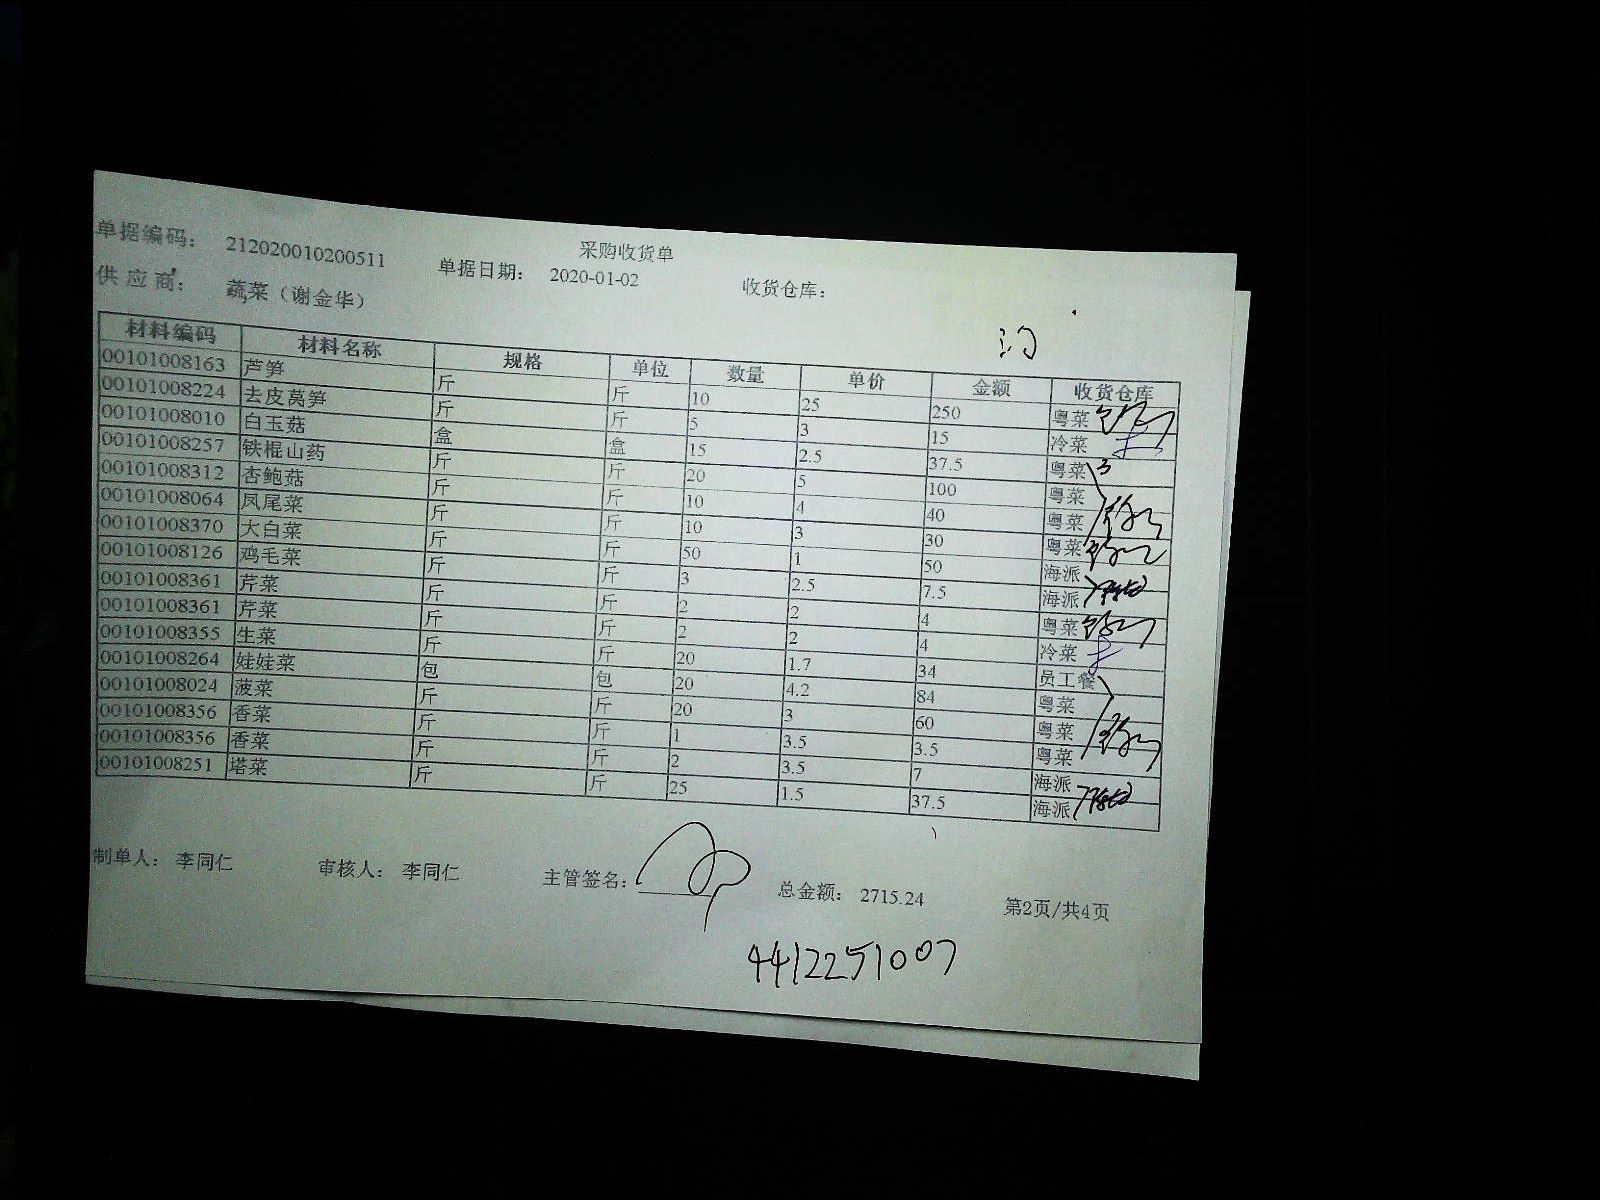 采购收货单
单据编码： 212020010200511 单据日期： 2020-01-02 收货仓库：
供应商： 蔬菜（谢金华）
材料编码 材料名称 规格 单位 数量 单价 金额 收货仓库
00101008163 芦笋 斤 斤 10 25 250 粤菜
00101008224 去皮莴笋 斤 斤 5 3 15 冷菜
00101008010 白玉菇 盒 盒 15 2.5 37.5 粤菜
00101008257 铁棍山药 斤 斤 20 5 100 粤菜
00101008312 杏鲍菇 斤 斤 10 4 40 粤菜
00101008064 凤尾菜 斤 斤 10 3 30 粤菜
00101008370 大白菜 斤 斤 50 1 50 海派
00101008126 鸡毛菜 斤 斤 3 2.5 7.5 海派
00101008361 芹菜 斤 斤 2 2 4 粤菜
00101008361 芹菜 斤 斤 2 2 4 冷菜
00101008355 生菜 斤 斤 20 1.7 34 员工餐
00101008264 娃娃菜 包 包 20 4.2 84 粤菜
00101008024 菠菜 斤 斤 20 3 60 粤菜
00101008356 香菜 斤 斤 1 3.5 3.5 粤菜
00101008356 香菜 斤 斤 2 3.5 7 海派
00101008251 塔菜 斤 斤 25 1.5 37.5 海派
制单人： 李同仁 审核人： 李同仁 主管签名： 总金额： 2715.24 第2页/共4页
4412251007